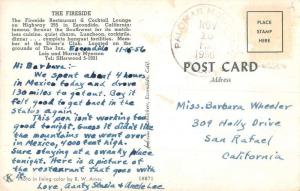 THE FIRESIDE
The Fireside Restaurant & Cocktail Lounge
on Highway 395 in Escondido, California
famous throughout the Southwest for its match-
less cuisine, quiet charm. Luncheon, cocktails,
dinner... complete banquet facilities. Mem-
ber of the Diner's Club. Located on the
grounds of The Inn. Escondido 11-9-56
Lois and Murray
Tel: SHerwood 5-1021
Hi Barbara:-
We spent about 4 hours
in Mexico today and drove
130 miles to get out. Boy it
felt good to get back in the
States again.
This pen isn't working too
good tonight. Guess it didn't like
the mountains we went over
in Mexico, 4000 feet high.
Sure staying at a swanky place
tonight. Here is a picture of
the restaurant that goes with
it.
Photo in living color by R. W. 18871
Love, Aunty and Uncle Lee
NOV
10
PM
PLACE
STAMP
HERE
POST CARD
Address
Miss. Barbara Wheeler
309 Holly Drive
San Rafael
California